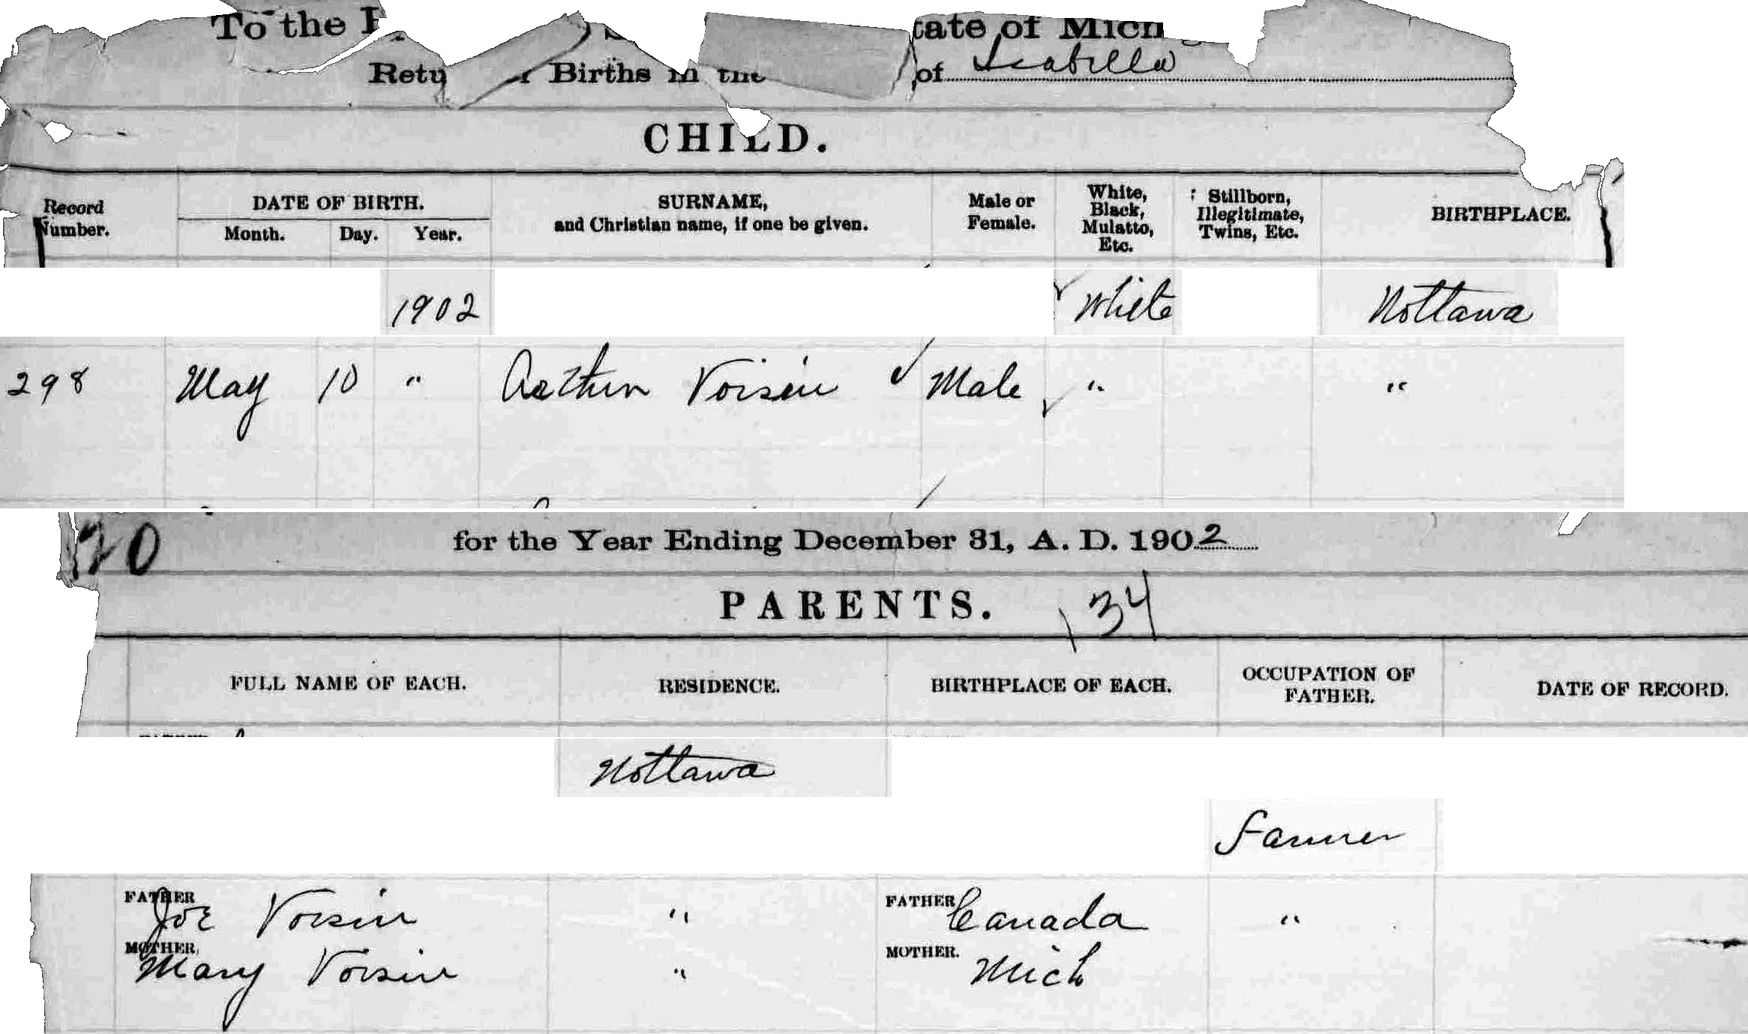 To the
tate of Mich
Retu Births in the of Isabella
CHILD.
Record Number.
DATE OF BIRTH.
Month. Day. Year.
SURNAME,
and Christian name, if one be given.
Male or Female.
White, Black, Mulatto, Etc.
Stillborn, Illegitimate, Twins, Etc.
BIRTHPLACE.
1902 White Nottawa
298 May 10 " Arthur Voisin Male " "
20
for the Year Ending December 31, A. D. 1902
PARENTS. 134
FULL NAME OF EACH.
RESIDENCE.
BIRTHPLACE OF EACH.
OCCUPATION OF FATHER.
DATE OF RECORD.
Nottawa
Farmer
FATHER Joe Voisin " FATHER Canada "
MOTHER. Mary Voisin " MOTHER. Mich